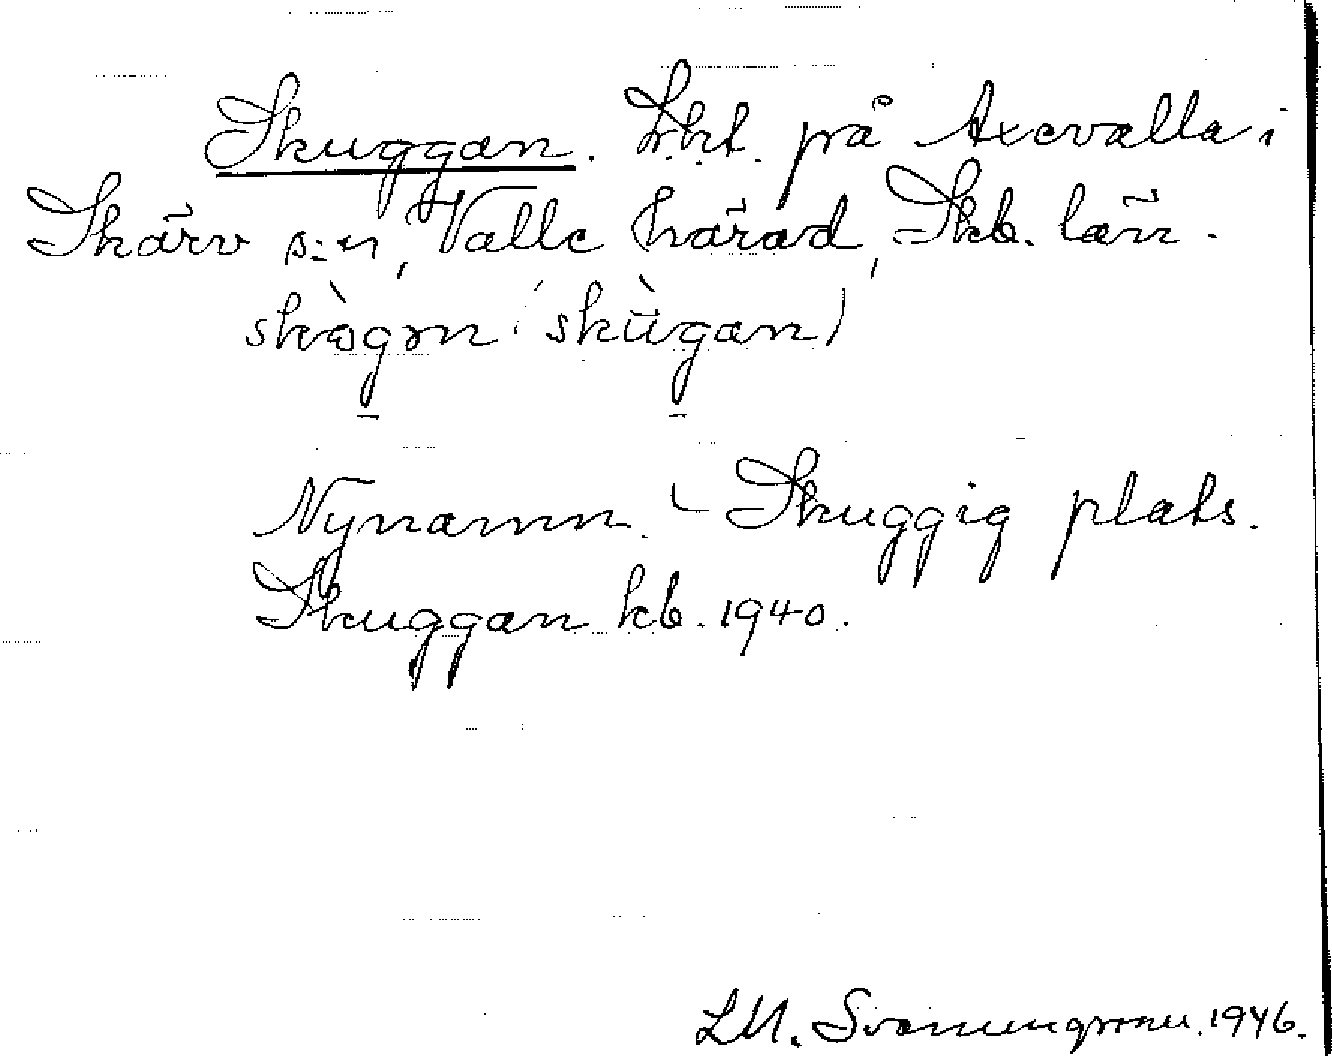 Skuggan. Lht. på Axevalla i
Skärv s:n, Valle härad, Skb. län.
skògɔn (skùgan)
Nynamn. - Skuggig plats.
Skuggan kb. 1940.
LM. Svenungsson. 1946.